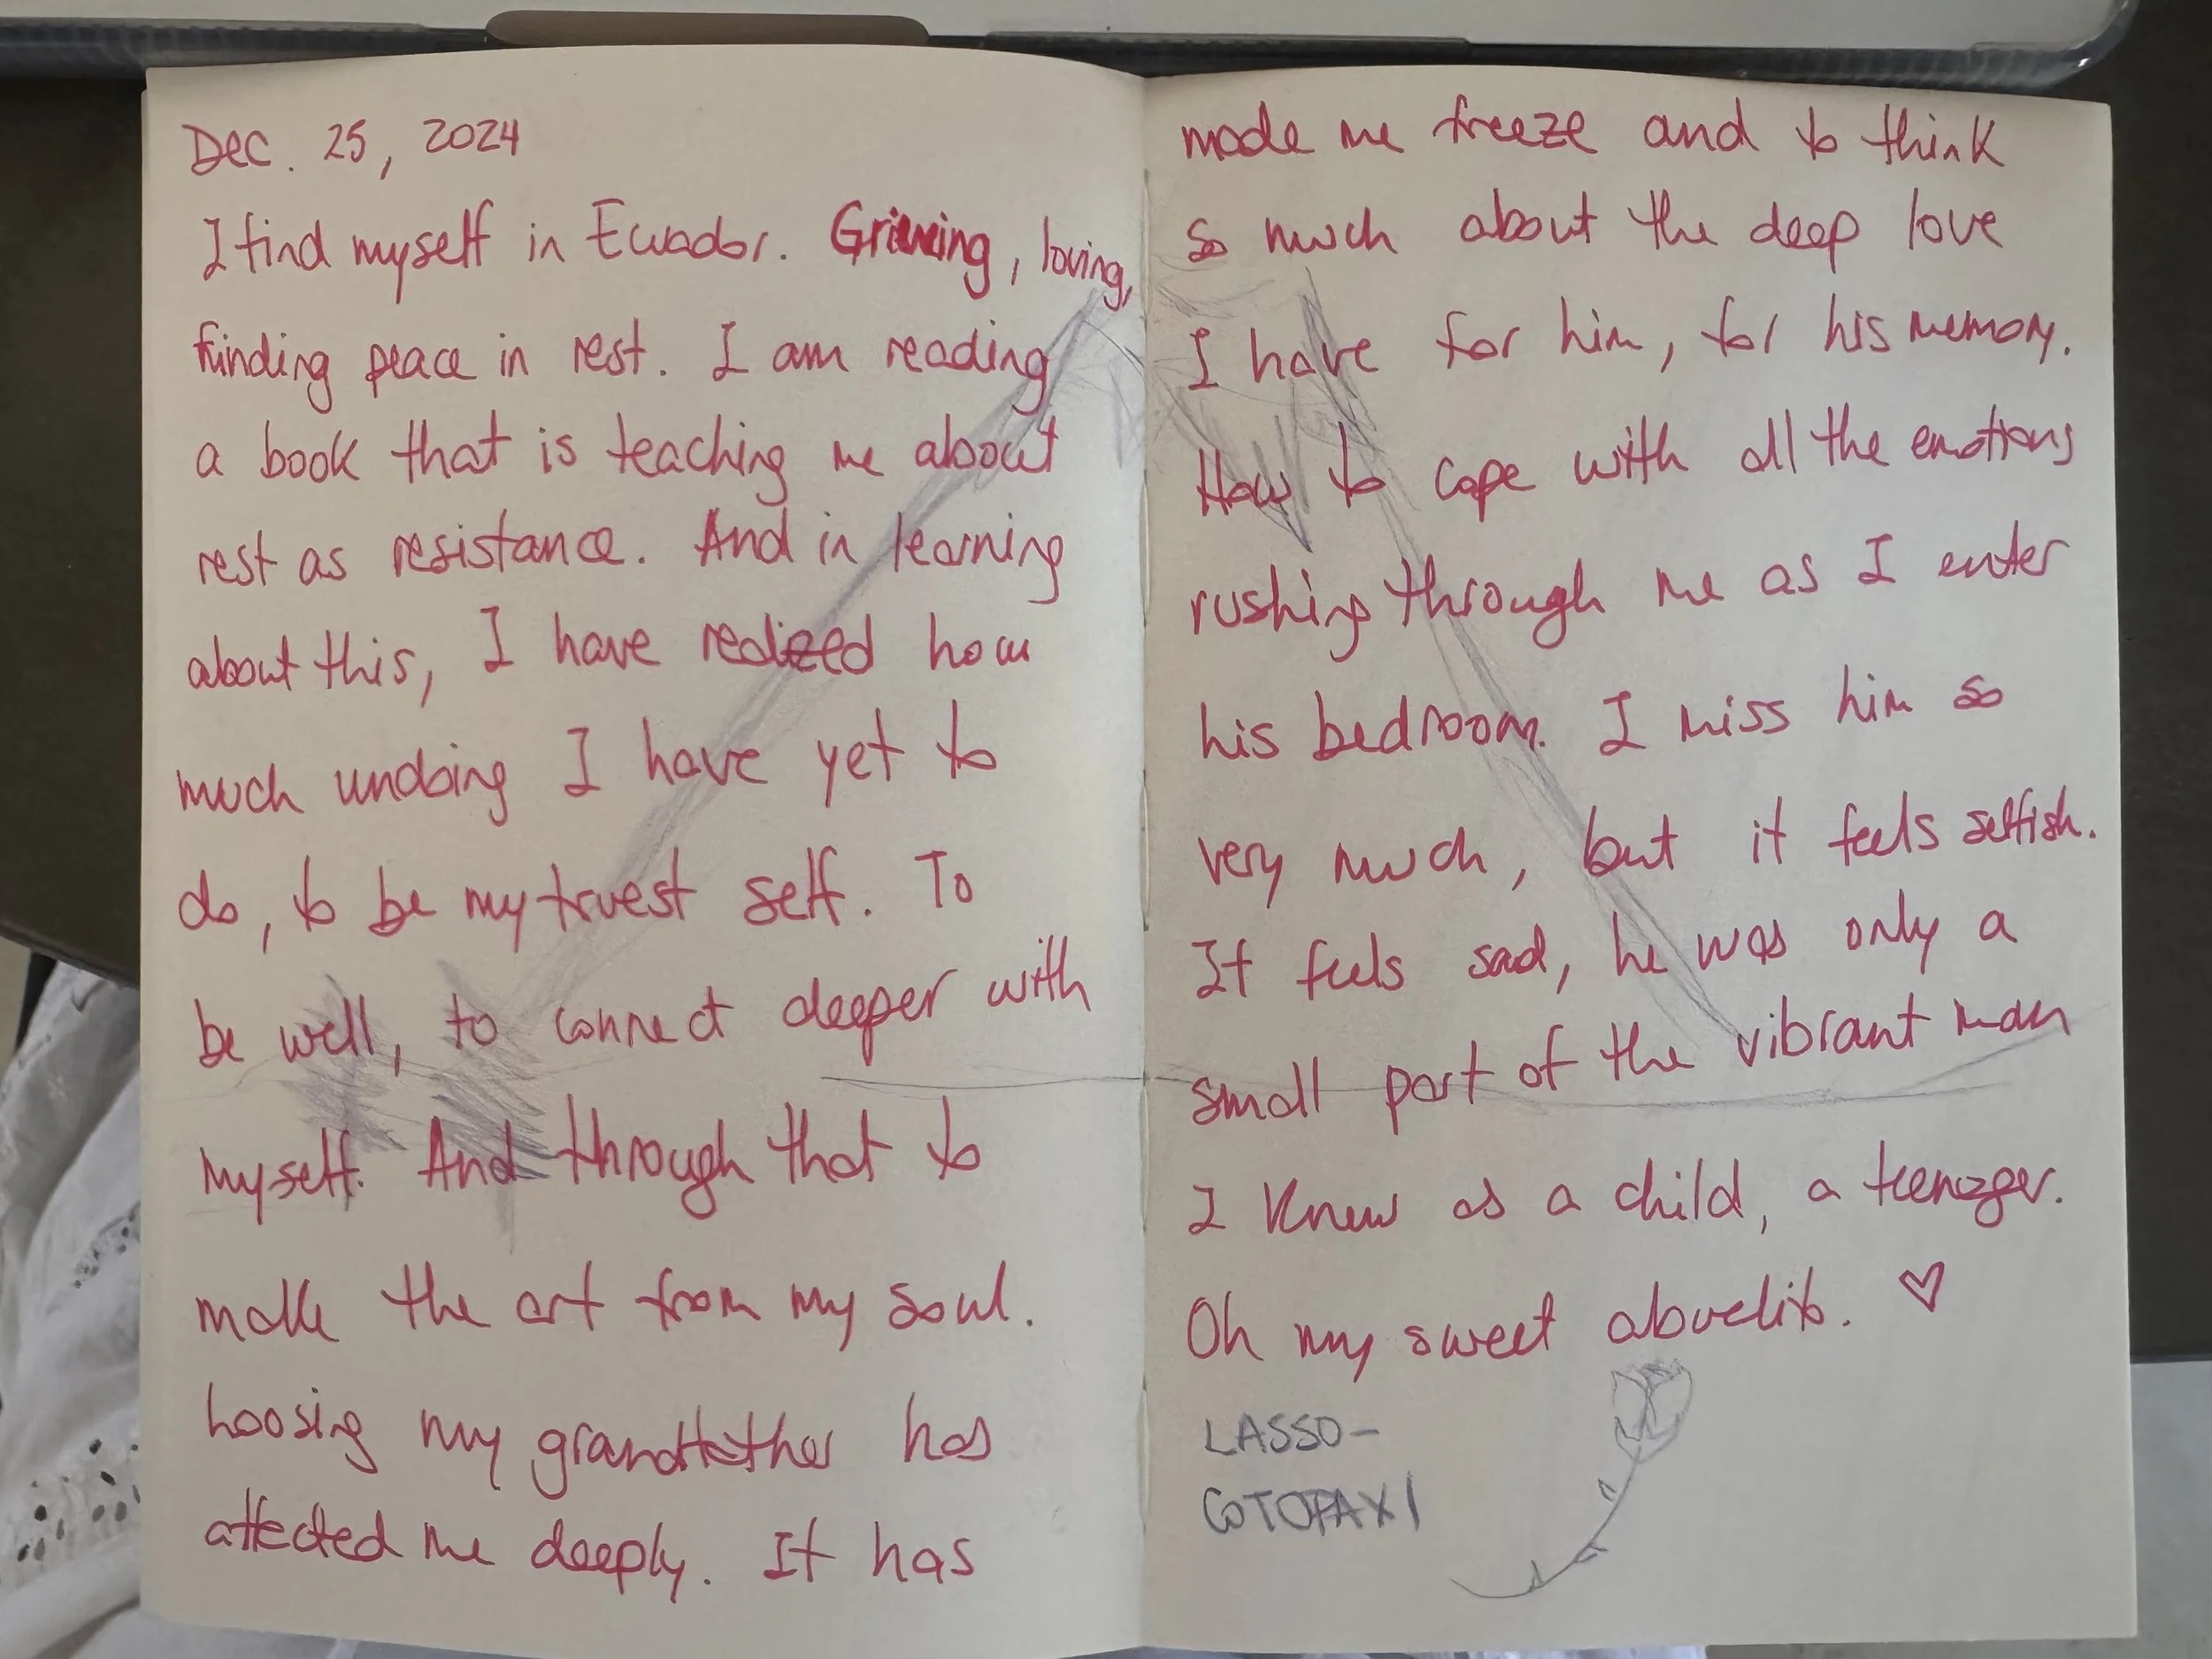 Dec. 25, 2024
I find myself in Ecuador. Grieving, loving,
finding peace in rest. I am reading
a book that is teaching me about
rest as resistance. And in learning
about this, I have realized how
much undoing I have yet to
do, to be my truest self. To
be well, to connect deeper with
myself. And through that to
make the art from my soul.
loosing my grandfather has
affected me deeply. It has
made me freeze and to think
so much about the deep love
I have for him, for his memory.
How to cope with all the emotions
rushing through me as I enter
his bedroom. I miss him so
very much, but it feels selfish.
It feels sad, he was only a
small part of the vibrant man
I knew as a child, a teenager.
Oh my sweet abuelito. ♡
LASSO-
COTOPAXI